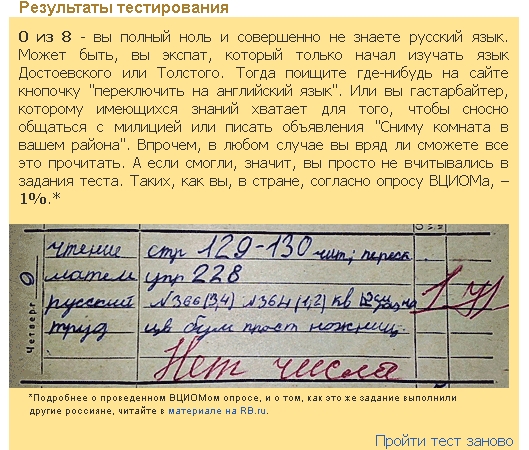 Результаты тестирования
0 из 8 - вы полный ноль и совершенно не знаете русский язык.
Может быть, вы экспат, который только начал изучать язык
Достоевского или Толстого. Тогда поищите где-нибудь на сайте
кнопочку "переключить на английский язык". Или вы гастарбайтер,
которому имеющихся знаний хватает для того, чтобы сносно
общаться с милицией или писать объявления "Сниму комната в
вашем района". Впрочем, в любом случае вы вряд ли сможете все
это прочитать. А если смогли, значит, вы просто не вчитывались в
задания теста. Таких, как вы, в стране, согласно опросу ВЦИОМа, –
1%.*
Четверг 9
чтение стр 129-130 чит; переск
матем упр 228
русский N366(3,4) N364(1,2) кв
труд цв бум прост ножниц.
Нет числа
*Подробнее о проведенном ВЦИОМом опросе, и о том, как это же задание выполнили
другие россияне, читайте в материале на RB.ru.
Пройти тест заново